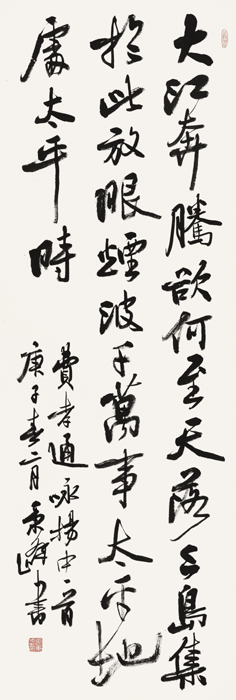 大江奔騰欲何至天落三島集
於此放眼煙波千萬事太平地
處太平時
費孝通咏揚中一首
庚子春二月秉峰書